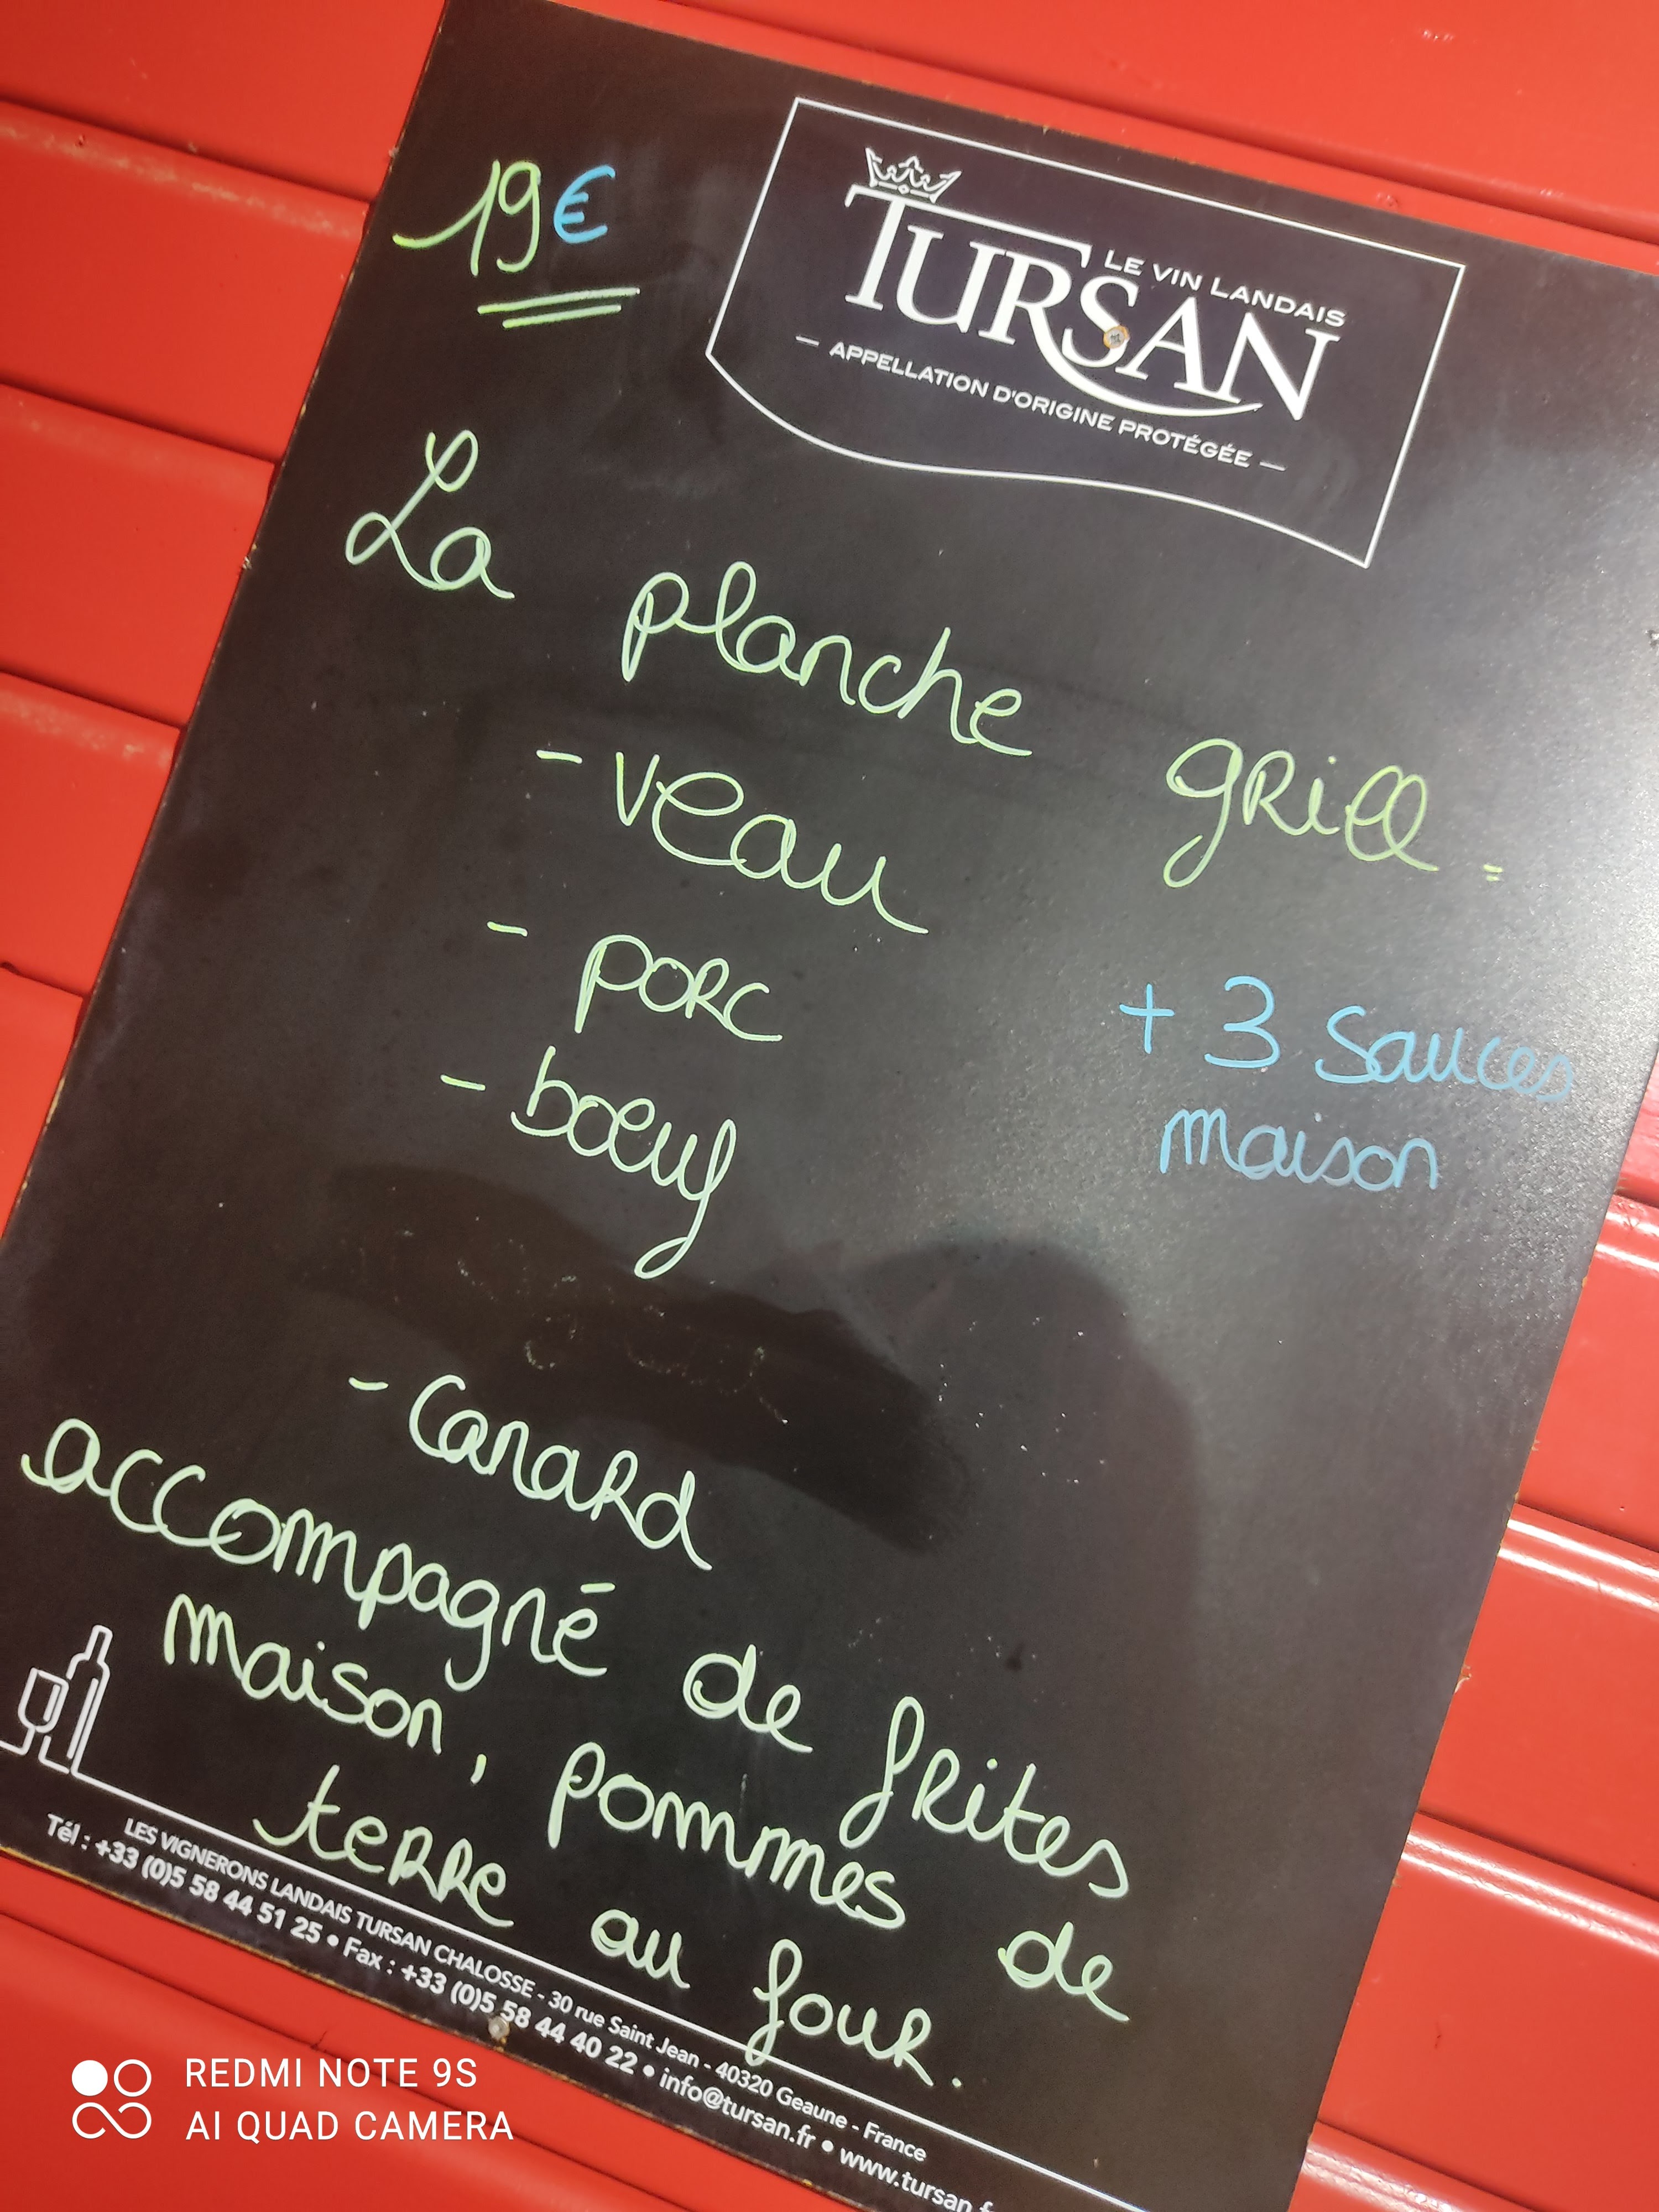 19€
LE VIN LANDAIS
TURSAN
— APPELLATION D'ORIGINE PROTÉGÉE —
La planche grill =
- veau
- porc
- bœuf
+ 3 sauces
maison
- canard
accompagné de frites
maison, pommes de
terre au four.
LES VIGNERONS LANDAIS TURSAN CHALOSSE - 30 rue Saint Jean - 40320 Geaune - France
Tél : +33 (0)5 58 44 51 25 • Fax : +33 (0)5 58 44 40 22 • info@tursan.fr • www.tursan.f
REDMI NOTE 9S
AI QUAD CAMERA